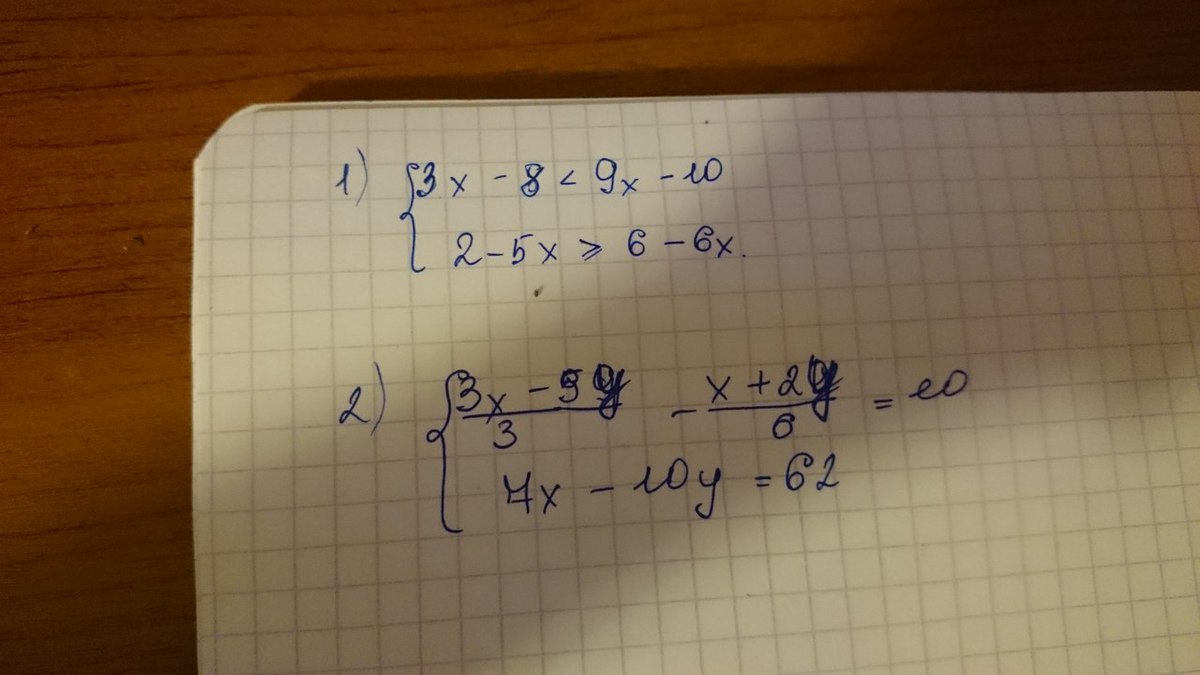 1) { 3x - 8 < 9x - 10
2 - 5x ⩾ 6 - 6x.
2) { (3x - 5y)/3 - (x + 2y)/6 = 10
7x - 10y = 62